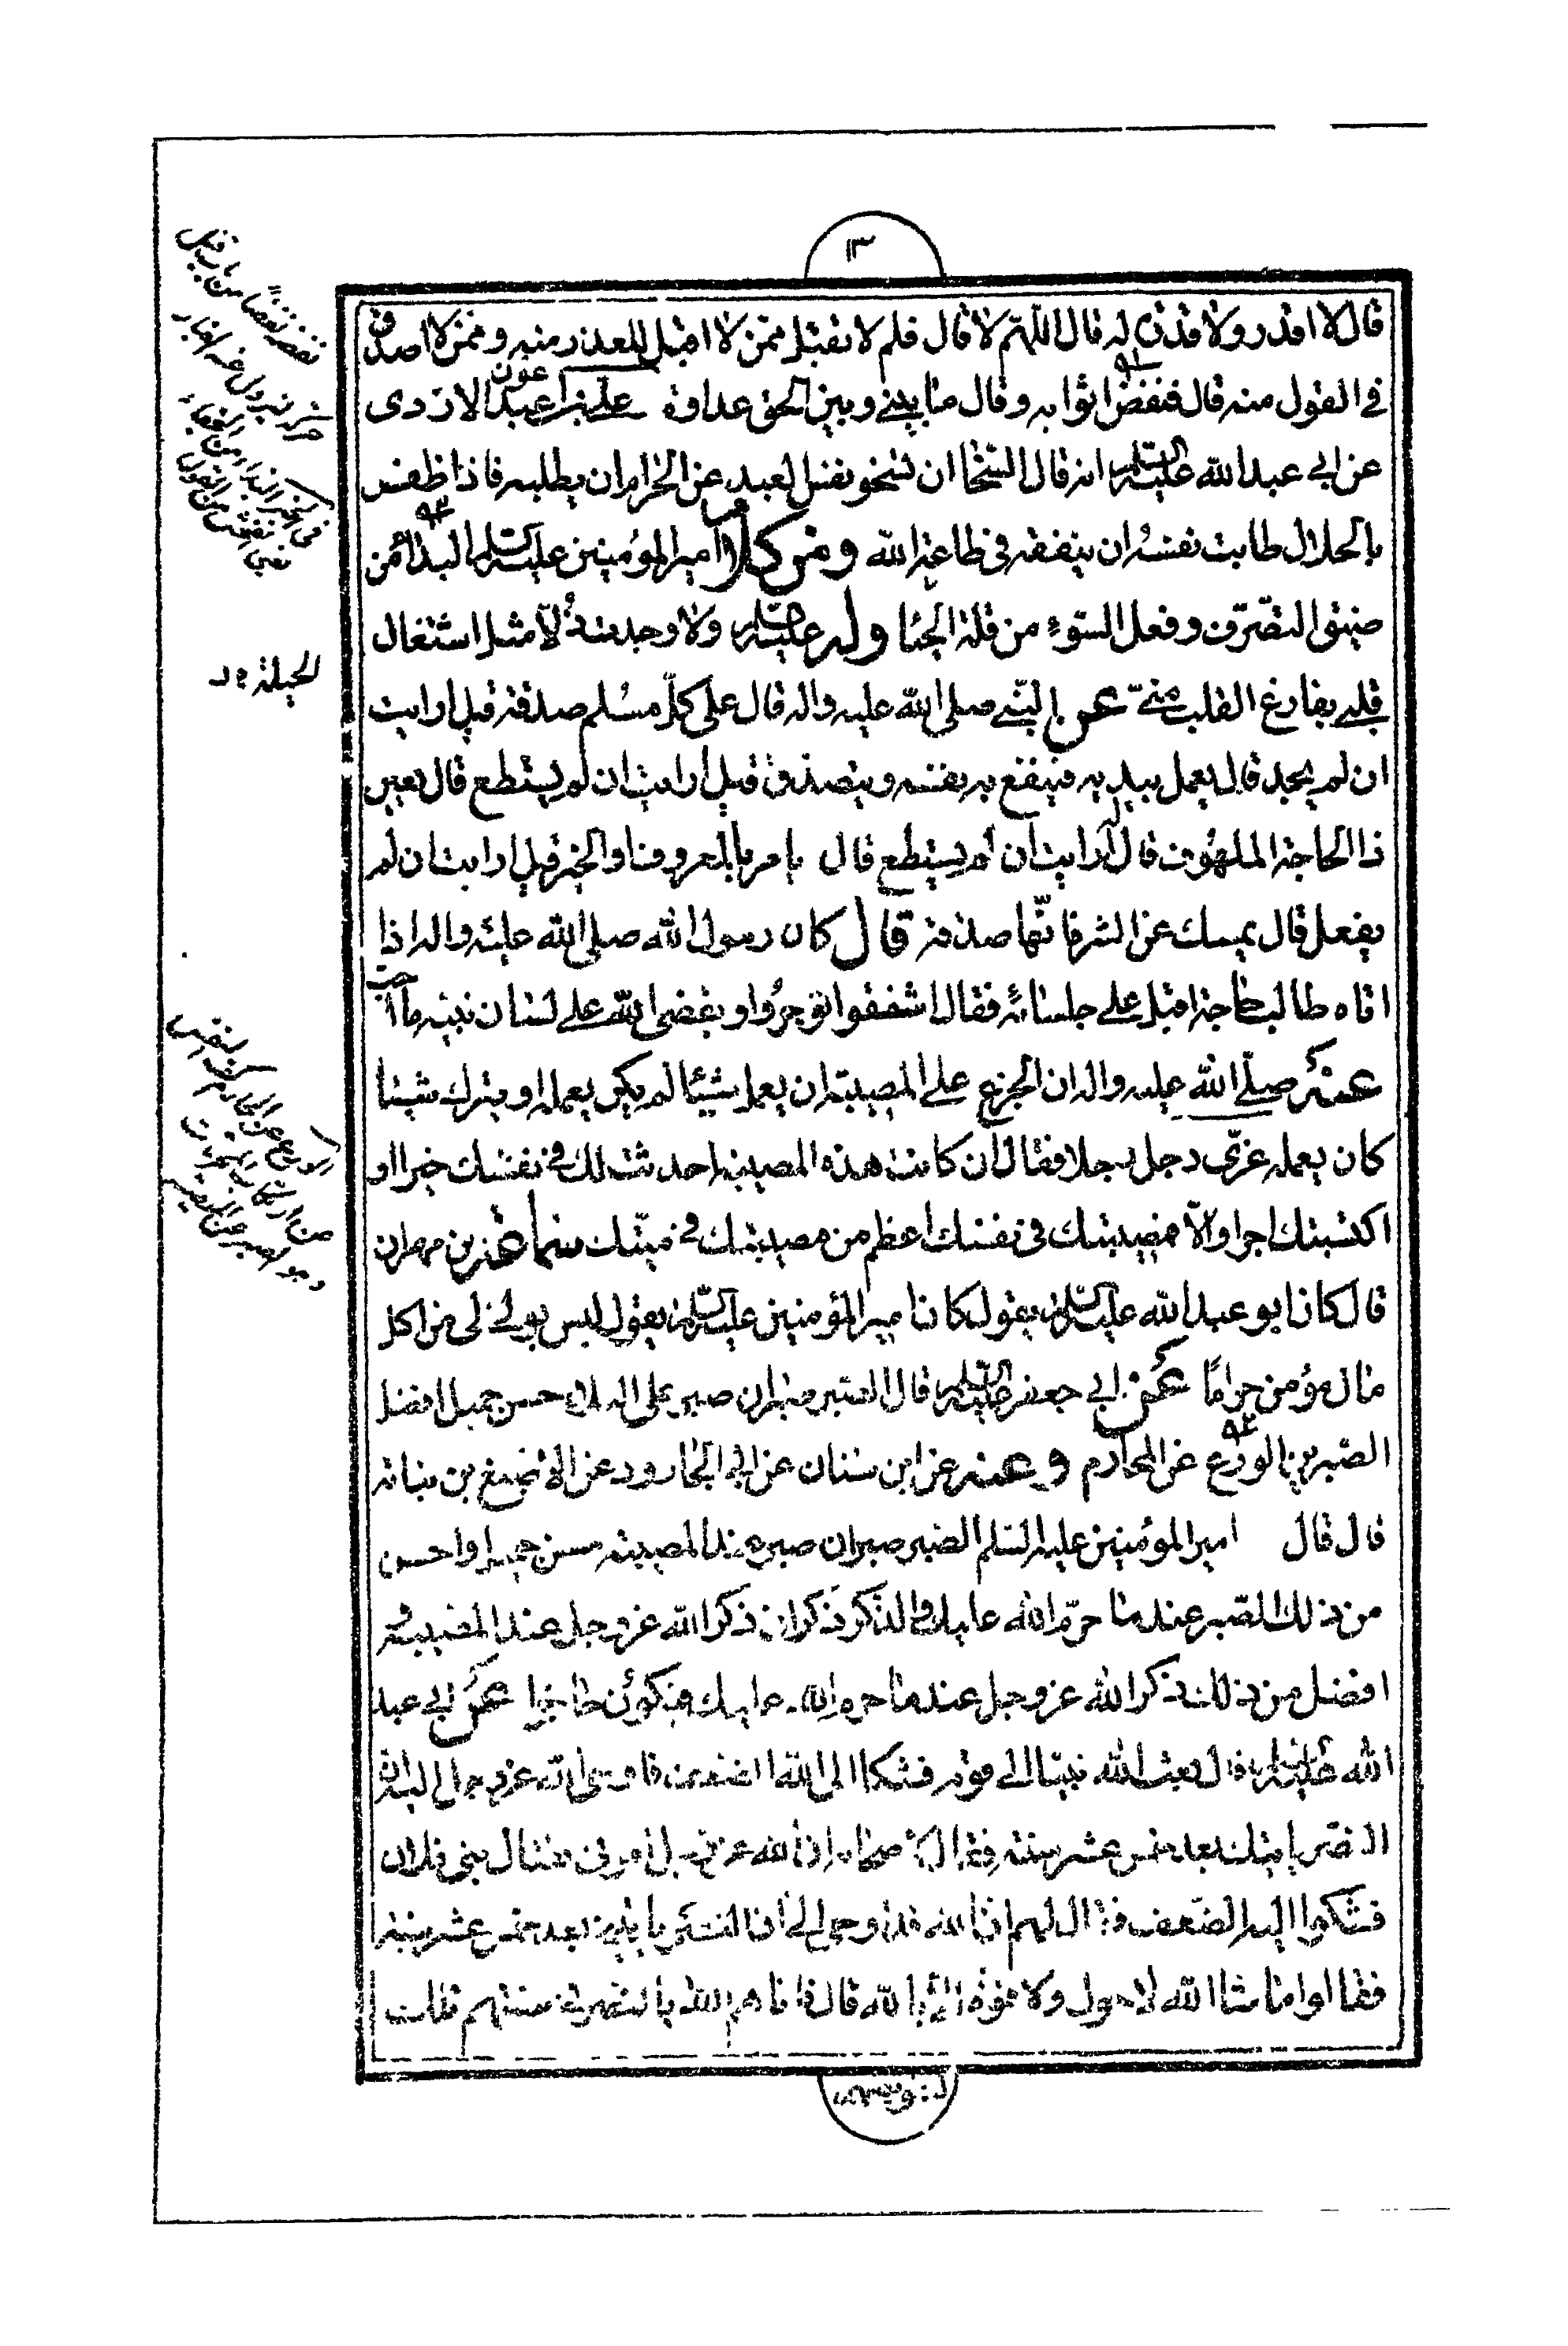 ١٣
قال لا اقدر ولا قذى له قال اللهم لا قال فلم لا تقبل ممن لا اقبل للعذر منه وممن لا اصدق
في القول منه قال فنفض اثوابه وقال ما بيني وبين الحق عداوة علي بن عبد الازدى
عون
عن ابي عبد الله عليه السلام انه قال السخا ان تسخو نفس العبد عن الحرام ان يطلبه فاذا ظفر
بالحلال طابت نفسه ان ينفقه في طاعة الله ومن كلام امير المؤمنين عليه السلم البذا من
ضيق التصرف وفعل السوء من قلة الحيا وله عليه السلم ولا وجد منه الا مثل اشتغال
قلبي بفارغ القلب مني عن النبي صلى الله عليه واله قال على كل مسلم صدقة قيل ارايت
ان لم يجد قال يعمل بيديه فينفع به نفسه ويتصدق قيل ارايت ان لم يستطع قال يعين
ذا الحاجة الملهوف قال ارايت ان لم يستطع قال يامر بالمعروف او الخير قيل ارايت ان لم
يفعل قال يمسك عن الشر فانها صدقة قال كان رسول الله صلى الله عليه واله اذا
اتاه طالب حاجة اقبل على جلسائه فقال اشفعوا توجروا ويقضى الله على لسان نبيه ما احب
عنه صلى الله عليه واله ان الجزع على المصيبة ان يعمل شيئا لم يكن يعمله او يترك شيئا
كان يعمله عزى رجل رجلا فقال ان كانت هذه المصيبة احدثت لك في نفسك خيرا او
اكسبتك اجرا والا فمصيبتك في نفسك اعظم من مصيبتك في ميتك سماعة بن مهران
قال كان ابو عبد الله عليه السلم يقول كان امير المؤمنين عليه السلم يقول ليس بولي لي من اكل
مال مؤمن حراما عن ابي جعفر عليه السلم قال الصبر صبران صبر على البلاء حسن جميل افضل
الصبرين الورع عن المحارم وعنه عن ابن سنان عن ابي الجارود عن الاصبغ بن نباته
قال قال امير المؤمنين عليه السلم الصبر صبران صبر عند المصيبة حسن جميل واحسن
من ذلك الصبر عند ما حرم الله عليك والذكر ذكران ذكر الله عز وجل عند المصيبة
افضل من ذلك ذكر الله عز وجل عند ما حرم الله عليك فيكون حاجزا عن ابي عبد
الله عليه السلم قال بعث الله نبيا الى قومه فشكا الى الله الضعف فاوحى الله عز وجل اليه ان
النصر ياتيك بعد خمس عشر سنة فقال لاصحابه ان الله عز وجل امرني بقتال بني فلان
فشكوا اليه الضعف فقال لهم ان الله قد اوحى الي ان النصر ياتيني بعد خمس عشر سنة
فقالوا ما شا الله لا حول ولا قوة الا بالله قال فاتاهم الله بالنصر في سنتهم تلك
الحيلة